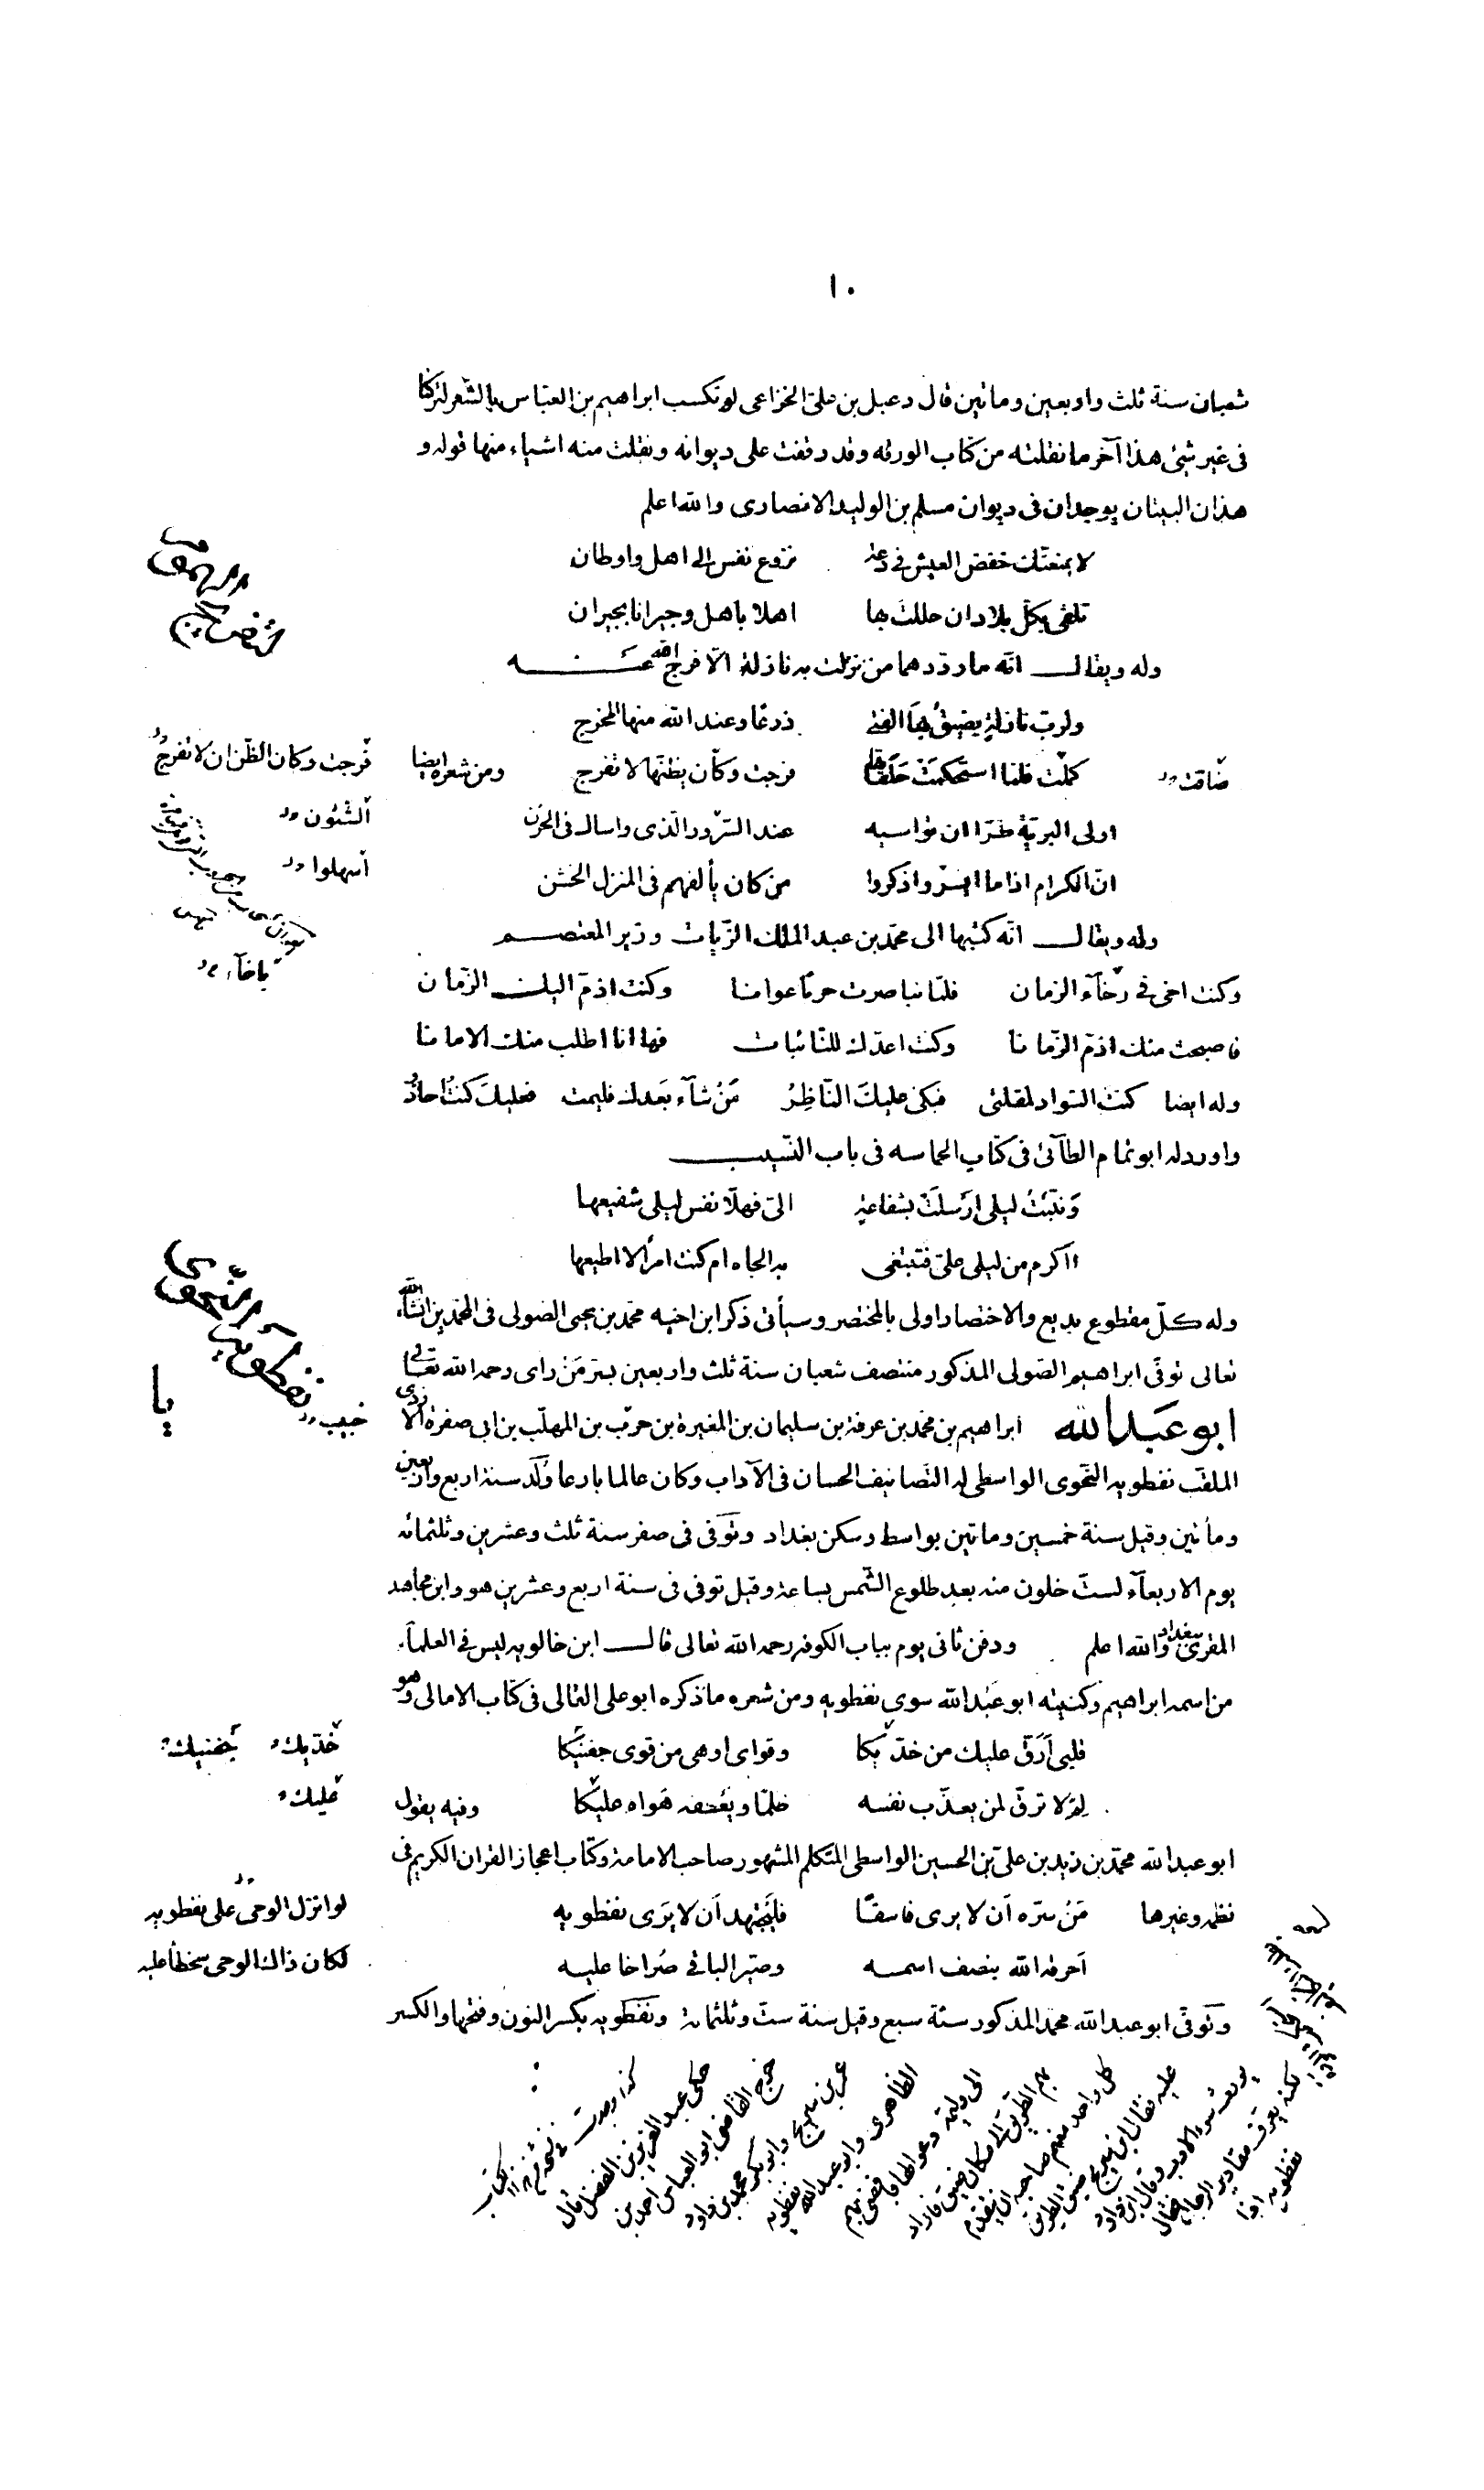 ١٠
شعبان سنة ثلث واربعين وماتين قال دعبل بن على الخزاعى لو تكسب ابراهيم بن العباس بالشعر لتركنا
فى غير شئ هذا آخر ما نقلته من كتاب الورقه وقد وقفت على ديوانه ونقلت منه اشياء منها قوله و
هذان البيتان يوجدان فى ديوان مسلم بن الوليد الانصارى والله اعلم
لا يمنعنّك خفض العيش فى دعة نزوع نفس الى اهل واوطان
تلقى بكلّ بلاد ان حللتَ بها اهلا باهل وجيرانا بجيران
وله ويقال انّه ما ردّدهما من نزلت به نازلة الّا فرج الله عنه
ولربّ نازلةٍ يضيقُ بها الفتى ذرعًا وعند الله منها المخرج
كملت فلما استحكمَتْ حلقاتها فرجت وكان يظنّها لا تفرج ومن شعره ايضا
ضاقت
فرجت وكان الظّن ان لا تفرج
اولى البريّة طرّا ان تواسيه عند السّرور الّذى واساك فى الحزن
انّ الكرام اذا ما ايسروا ذكروا من كان يألفهم فى المنزل الخشن
اسهلوا
وله ويقال انّه كتبها الى محمّد بن عبد الملك الزّيات وزير المعتصم
وكنت اخى فى رخآء الزمان فلمّا نبا صرت حربًا عوانا وكنت اذمّ اليك الزّمان
باخآء
فاصبحت منك اذمّ الزّمانا وكنت اعدّك للنّائبات فها انا اطلب منك الامانا
وله ايضا كنت السّواد لمقلتى فبكى عليكَ النّاظِرُ مَنْ شآء بَعدك فليمت فعليكَ كنتُ احاذرُ
واورد له ابو تمام الطآئى فى كتاب الحماسه فى باب النّسيب
وَنبّئتُ ليلى ارْسلَتْ بشفاعةٍ الىّ فهلّا نفس ليلى شفيعها
ااكرم من ليلى علىّ فتبتغى به الجاه ام كنت امرأ لا اطيعها
وله كلّ مقطوع بديع والاختصار اولى بالمختصر وسيأتى ذكر ابن اخيه محمّد بن يحيى الصّولى فى المحمّدين انشآء الله
تعالى توفّى ابراهيم الصّولى المذكور منتصف شعبان سنة ثلث واربعين بسرّ مَنْ راى رحمه الله تعالى
ابو عَبد الله ابراهيم بن محمّد بن عرفة بن سليمان بن المغيرة بن حرب بن المهلّب بن ابى صفرة الازدى
حبيب
الملقّب نفطويه النّحوى الواسطى له التّصانيف الحسان فى الآداب وكان عالما بارعا وُلد سنة اربع واربعين
ومأتين وقيل سنة خمسين وماتين بواسط وسكن بغداد وتوَفى فى صفر سنة ثلث وعشرين وثلثمائه
يوم الاربعآء لستّ خلون منه بعد طلوع الشّمس بساعة وقيل توفى فى سنة اربع وعشرين هو وابن مجاهد
المقرى ببغداد والله اعلم ودفن ثانى يوم بباب الكوفه رحمه الله تعالى قال ابن خالويه ليس فى العلمآء
من اسمه ابراهيم وكنيته ابو عَبْد الله سوى نفطويه ومن شعره ما ذكره ابو على القالى فى كتاب الامالى وهو
قلبى اَرَقّ عليك من خدّيكا وقواى اوهى من قوى جفنيْكا
خدّيك جفنيك
لِمْ لا ترقّ لمن يعذّب نفسه ظلمًا ويعْطفه هَواه عليْكا وفيه يقول
عليك
ابو عبد الله محمّد بن زيد بن علىّ بن الحسين الواسطى المتكلم المشهور صاحب الامامة وكتاب اعجاز القران الكريم فى
نظمه وغيرها مَنْ سرّه اَن لا يرى فاسقًا فليَجتهد اَن لا يرَى نفطويه
لو انزل الوحى على نفطويه
اَحرقه الله بنصف اسمه وصيّر الباقى صُراخا عليه
لكان ذاك الوحى سخطًا عليه
وتوَفّى ابو عبد الله محمد المذكور سنة سبع وقيل سنة ستّ وثلثمائة ونفطويه بكسر النون وفتحها والكسر
حكى عبد العزيز بن الفضل قال
خرج القاضى ابو العباس احمد بن
عمر بن سريج وابو بكر محمد بن داود
الظاهرى وابو عبد الله نفطويه
الى وليمة دعوا لها فافضى بهم
بهم الطريق الى مكان ضيق فاراد
كل واحد منهم صاحبه ان يتقدم
عليه فقال ابن سريج ضيق الطريق
يورث سوء الادب وقال ابن داود
لكنه يعرف مقادير الرجال فقال
نفطويه اذا